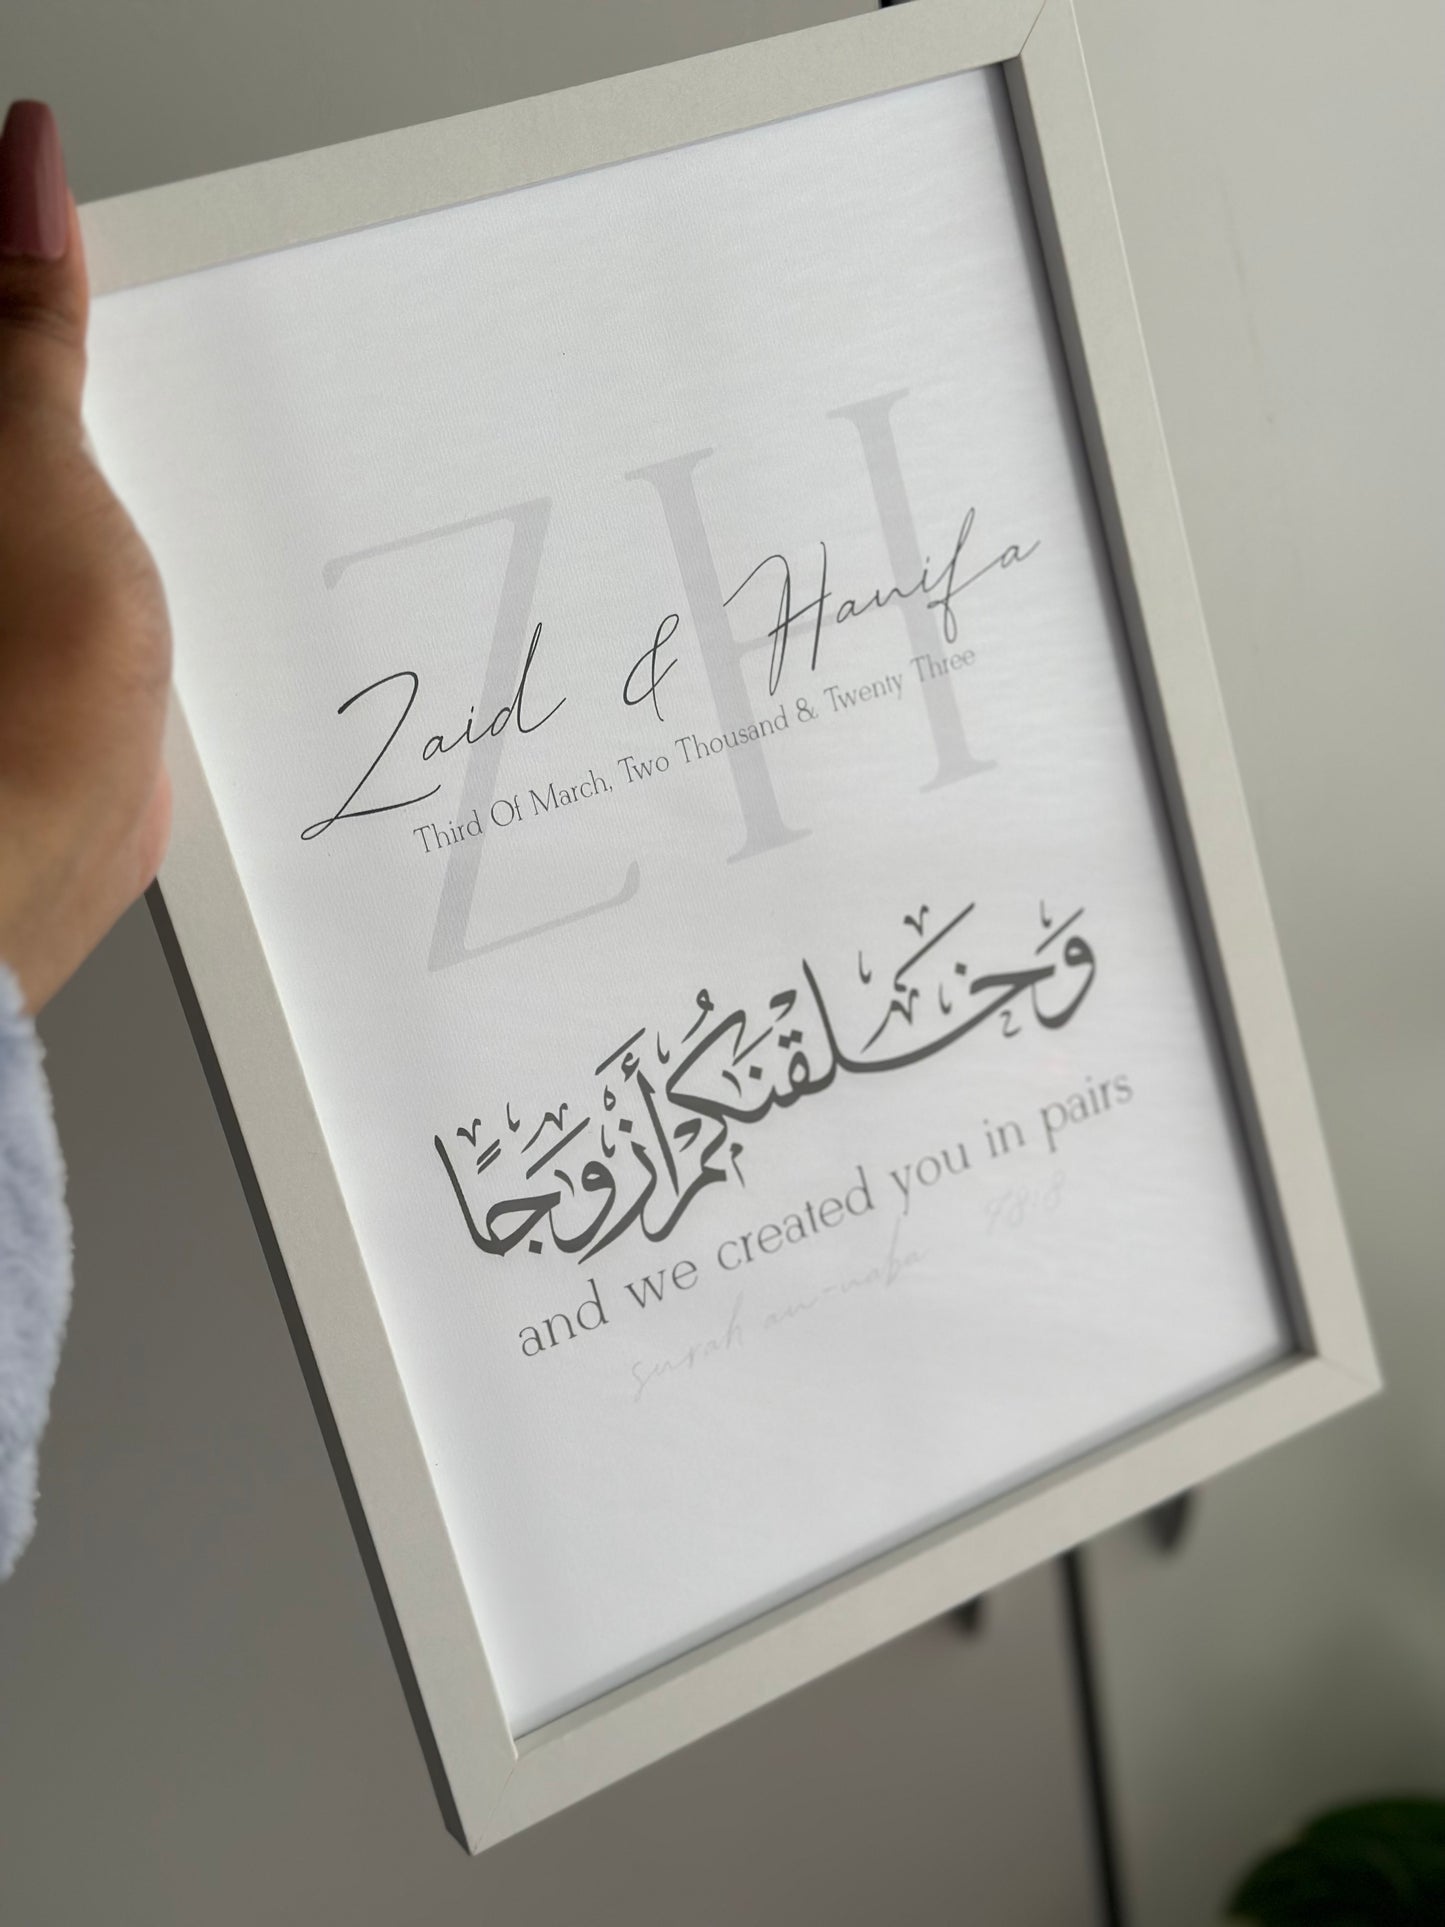 ZH
Zaid & Hanifa
Third Of March, Two Thousand & Twenty Three
وَخَلَقْنَٰكُمْ أَزْوَٰجًا
and we created you in pairs
surah an-naba 78:8